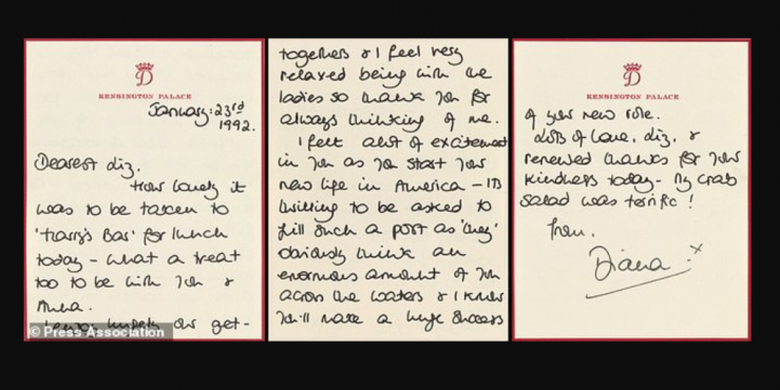 D
KENSINGTON PALACE
January: 23rd
1992.
Dearest Liz.
How lovely it
was to be taken to
'Harry's Bar' for lunch
today - what a treat
too to be with you &
Anna.
our get-
© Press Association
togethers & I feel very
relaxed being with the
ladies so thank you for
always thinking of me.
I felt alot of excitement
in you as you start your
new life in America - its
thrilling to be asked to
fill such a post as 'they'
obviously think an
enormous amount of you
across the waters & I know
you'll make a huge success
D
KENSINGTON PALACE
of your new role.
Lots of love, Liz, &
renewed thanks for your
kindness today - my crab
salad was terrific!
from.
Diana x